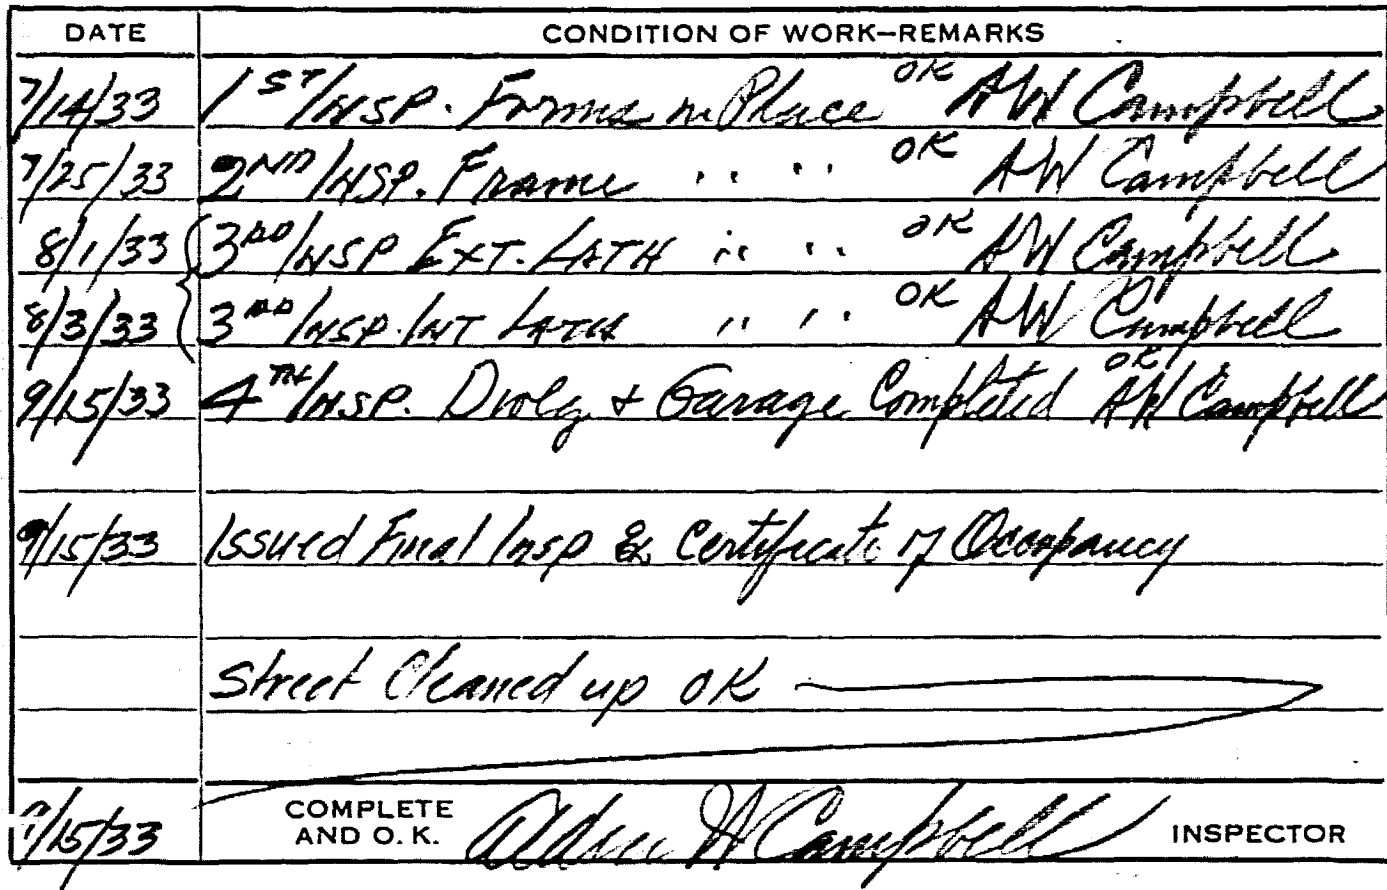 DATE CONDITION OF WORK—REMARKS
7/14/33 1ST INSP. Forms in Place OK AW Campbell
7/25/33 2ND INSP. Frame " " OK AW Campbell
8/1/33 3RD INSP EXT. LATH " " OK AW Campbell
8/3/33 3RD INSP. INT LATH " " OK AW Campbell
9/15/33 4TH INSP. Dwlg + Garage Completed OK AW Campbell
9/15/33 Issued Final Insp & Certificate of Occupancy
Street Cleaned up OK
9/15/33 COMPLETE AND O. K. W Campbell INSPECTOR